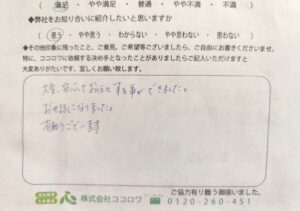 満足 ・ やや満足 ・ 普通 ・ やや不満 ・ 不満
◆弊社をお知り合いに紹介したいと思いますか
思う ・ やや思う ・ わからない ・ やや思わない ・ 思わない
◆その他印象に残ったこと、ご意見、ご希望等ございましたら、ご自由にお書きくださいませ。
特に、ココロワに依頼する決め手となったことがありましたらご記入いただけますと
大変ありがたいです。宜しくお願い致します。
大変、安心しておまかせする事ができました。
お世話になりました。
有難うございます
ご協力有り難う御座いました。
株式会社ココロワ
0120-260-451